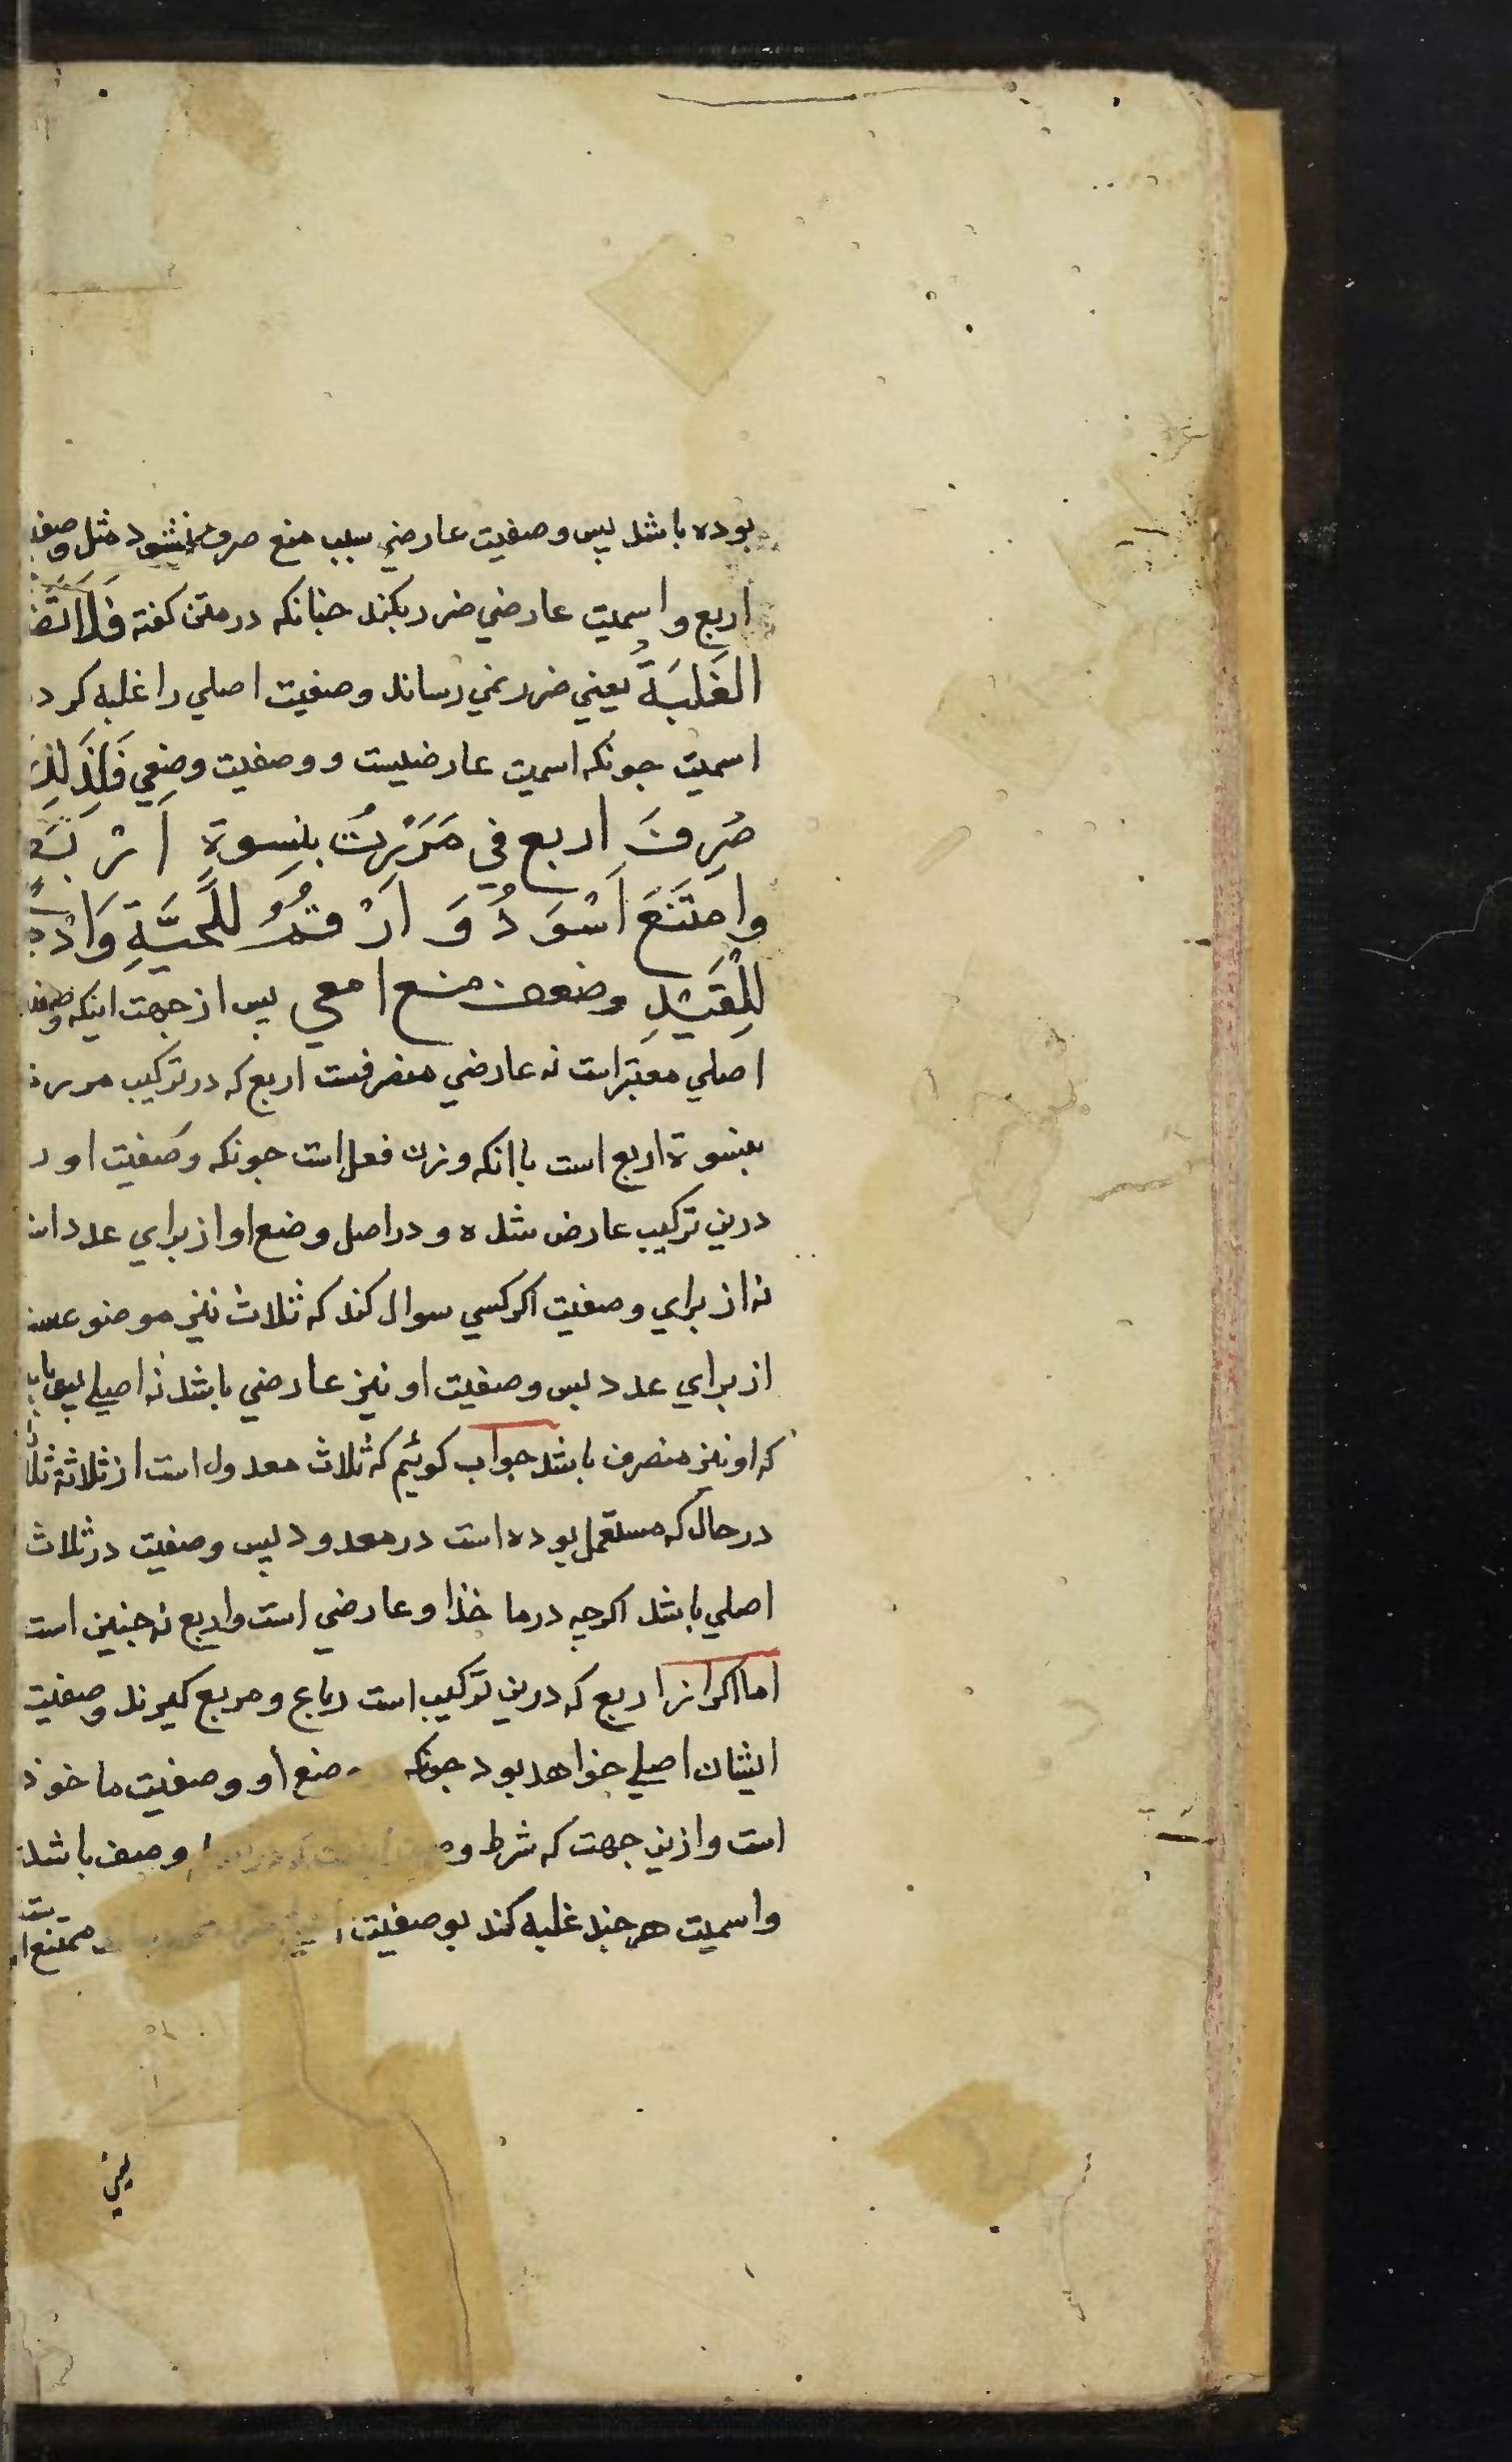 بوده باشد پس وصفیت عارضي سبب منع صرف نشود مثل وصف
اربع واسمیت عارضي ضرر بکند جنانکه در متن کفته فَلَا تَضُ
الغَلَبَةُ یعني ضرر نمي رساند وصفیت اصلي را غلبه کرد
اسمیت جونکه اسمیت عارضیست و وصفیت وضعي فَلِذَلِكَ
صُرِفَ اربع في مَرَرْتُ بنِسوةٍ اَرْبَع
وامتَنَعَ اَسْوَدُ وَ اَرْقَمُ للحَيَّةِ وَاَدْهَ
لِلْقَيْدِ وضعف منع افعي پس از جهت اینکه وصف
اصلي معتبر است نه عارضي منصرفست اربع که در ترکیب مررت
بنسوة اربع است با انکه وزن فعل است جونکه وصفیت او د
درین ترکیب عارض شده و در اصل وضع او از براي عدد است
نه از براي وصفیت اکر کسي سوال کند که ثلاث نیز موضوعست
از براي عدد پس وصفیت او نیز عارضي باشد نه اصلي پس باید
که او نیز منصرف باشد جواب کوئیم که ثلاث معدول است از ثلاثة ثلاثة
در حال که مستعمل بوده است در معدود پس وصفیت در ثلاث
اصلي باشد اکرچه در ماخذ او عارضي است واربع نه جنین است
اما اکر از اربع که درین ترکیب است رباع و مربع کیرند وصفیت
ایشان اصلي خواهد بود جونکه وضع او وصفیت ماخوذ
است وازین جهت که شرط وصف باشد
واسمیت هر جند غلبه کند بوصفیت ممتنع است
یعني